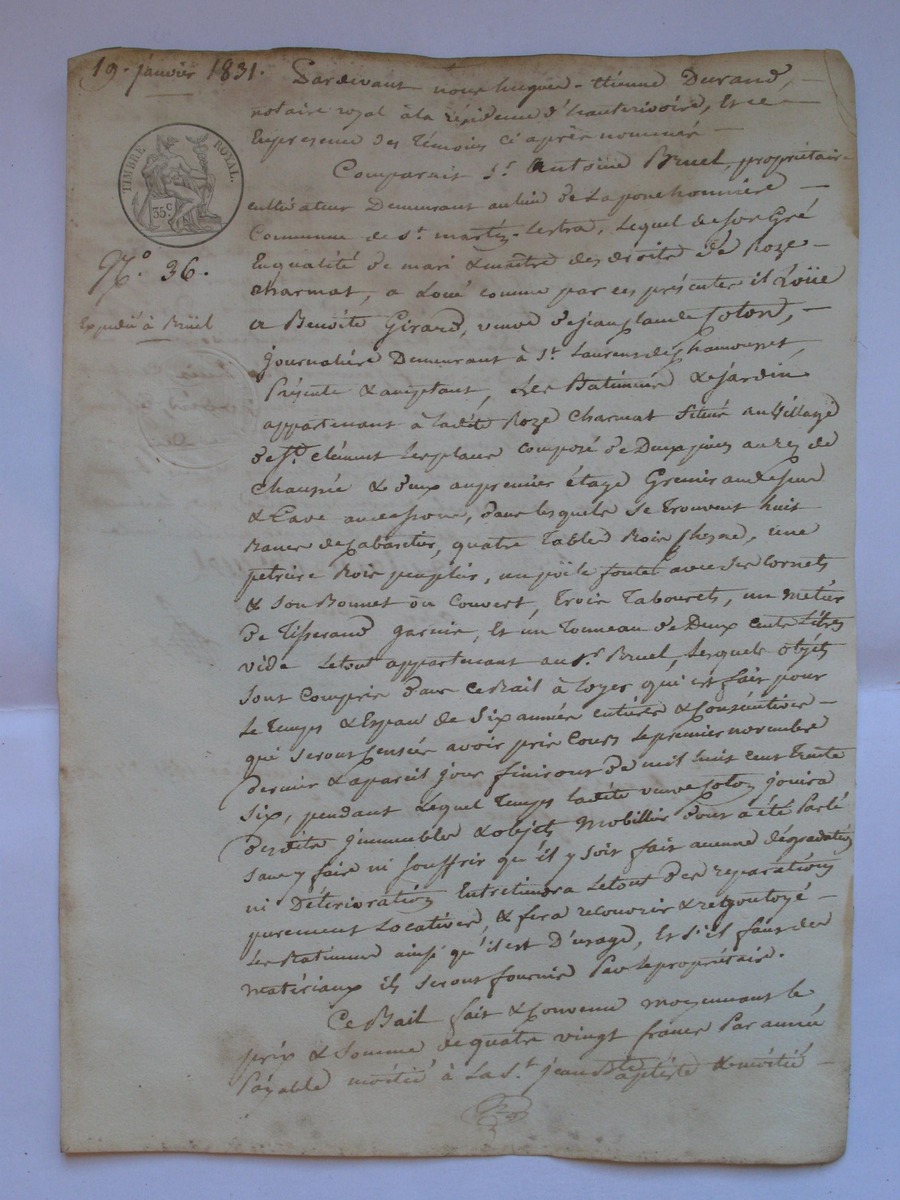 19. janvier 1831.
Pardevant nous hugues-Etienne Durand,
notaire royal à la résidence d'hauterivoire, Et en
Empresence des Témoins ci après nommés
Comparait S.r Antoine Bruel, propriétaire
cultivateur Demeurant au lieu de La ponchonnière
Commune de S.t martin-Lestra, Lequel de son Gré
Enqualité de mari & maître des droits de Roze
charmat, a Loué comme par ces présentes il Loüe
a Benoite Girard, veuve de jean claude Coton,
journalière Demeurant à S.t Laurent de Chamousset,
Présente & acceptant, Les Batiments & jardin
appartenant à ladite Roze Charmat Situés au Village
de S.t clément Les places composé de Deux pièces au rez de
Chaussée & deux au premier étage Grenier au dessus
& Cave au dessous, dans lesquels se trouvent huit
Bancs de Cabaretier, quatre Tables Bois chesne, une
petrière Bois peuplier, un poële fonte avec ses Cornets
& son Bonnet ou Couvert, Trois Tabourets, un métier
de Tisserand garnie, Et un Tonneau de Deux cents Litres
vide Le tout appartenant au S.r Bruel, Lesquels objets
sont compris dans ce Bail à Loyer qui est fait pour
Le Temps & Espace de Six années entières & Consécutives
qui seront Censées avoir pris Cours Le premier novembre
dernier & apareil jour finiront De mil huit cent Trente
Six, pendant Lequel Temps ladite veuve Coton jouira
Desdits jmmeubles & objets Mobilliers Dont a été Parlé
sans y faire ni souffrir qu'il y soit fait aucune dégradation
ni Détérioration Entretiendra Le tout Des réparations
purement Locatives, & fera recouvrir & regoutoyé
Les Batiments ainsi qu'il est D'usage, Et s'il faut des
matériaux ils seront fournis Par Le propriétaire.
Ce Bail fait & Convenu moyennant le
prix & Somme de quatre vingt francs Par année
Payable moitié à La S.t jean Baptiste & moitié
TIMBRE ROYAL.
35 c.
N.o 36.
Expédié à Brüel